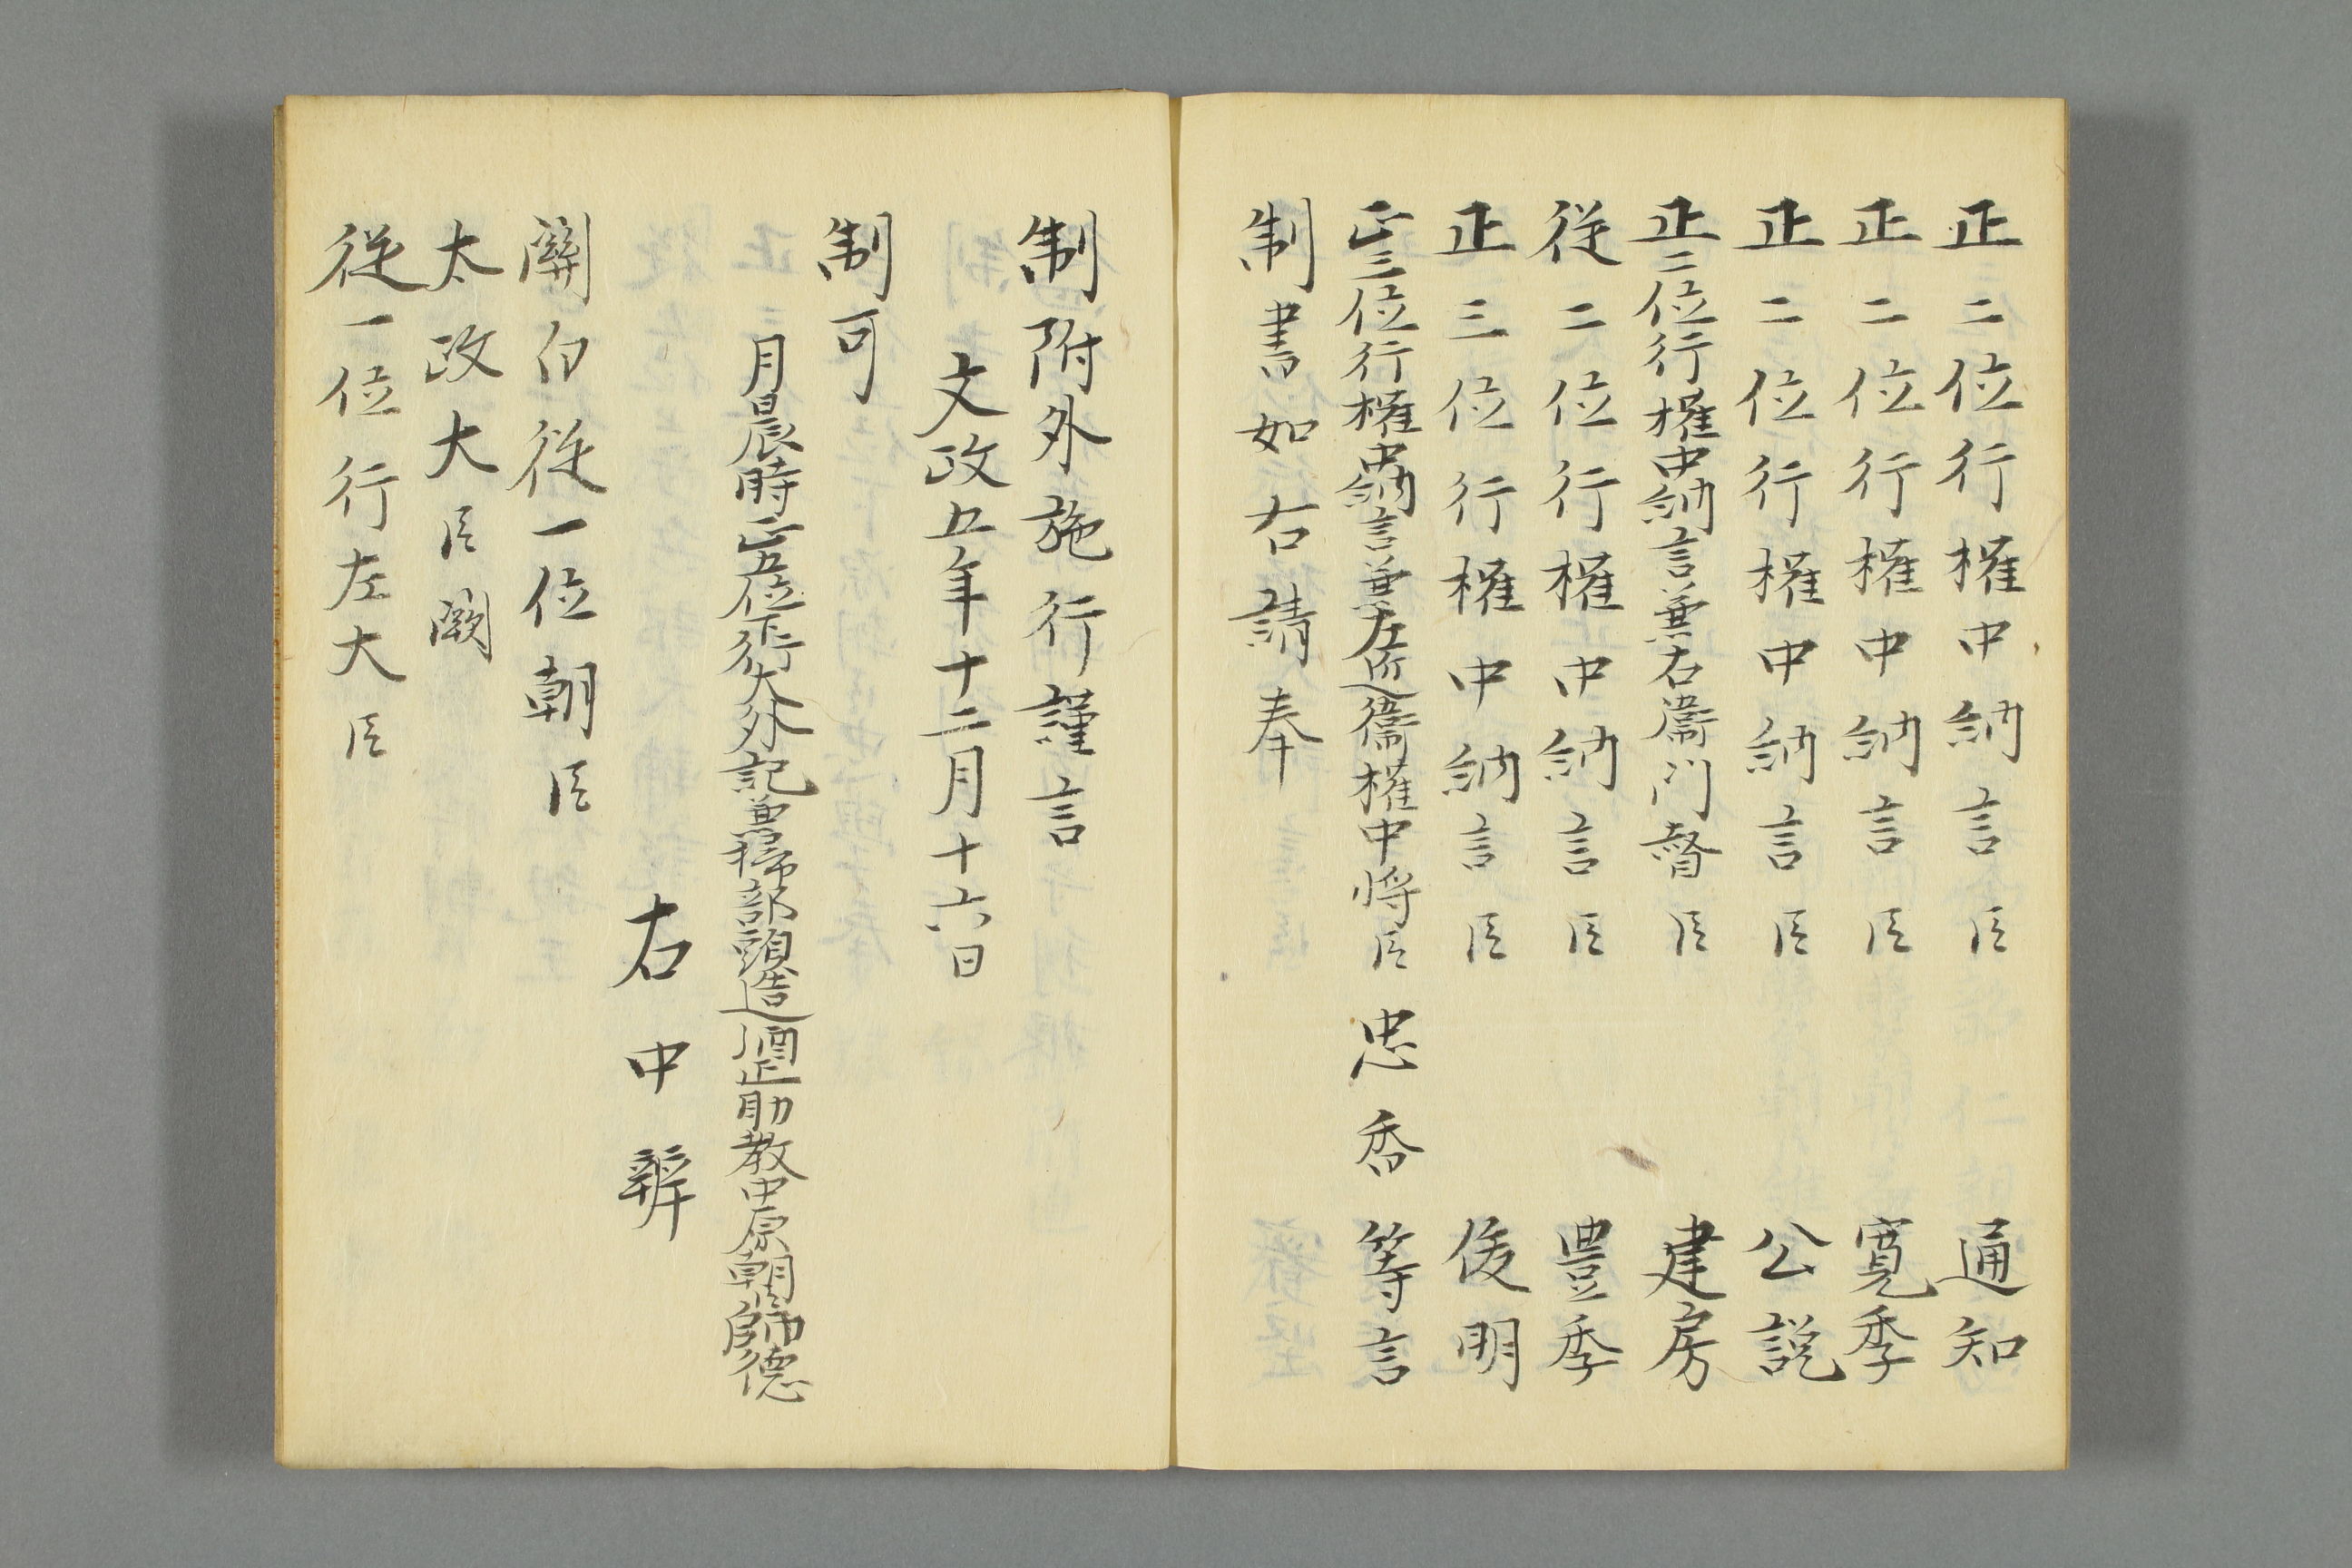 正二位行權中納言臣 通知
正二位行權中納言臣 寛季
正二位行權中納言臣 公説
正二位行權中納言兼右衞門督臣 建房
従二位行權中納言臣 豊季
正三位行權中納言臣 俊明
正三位行權中納言兼左近衞權中将臣忠香等言
制書如右請奉
制附外施行謹言
文政五年十二月十六日
制可
月日辰時正五位下行大外記兼掃部頭造酒正助教中原朝臣師德
右中辨
關白従一位朝臣
太政大臣闕
従一位行左大臣